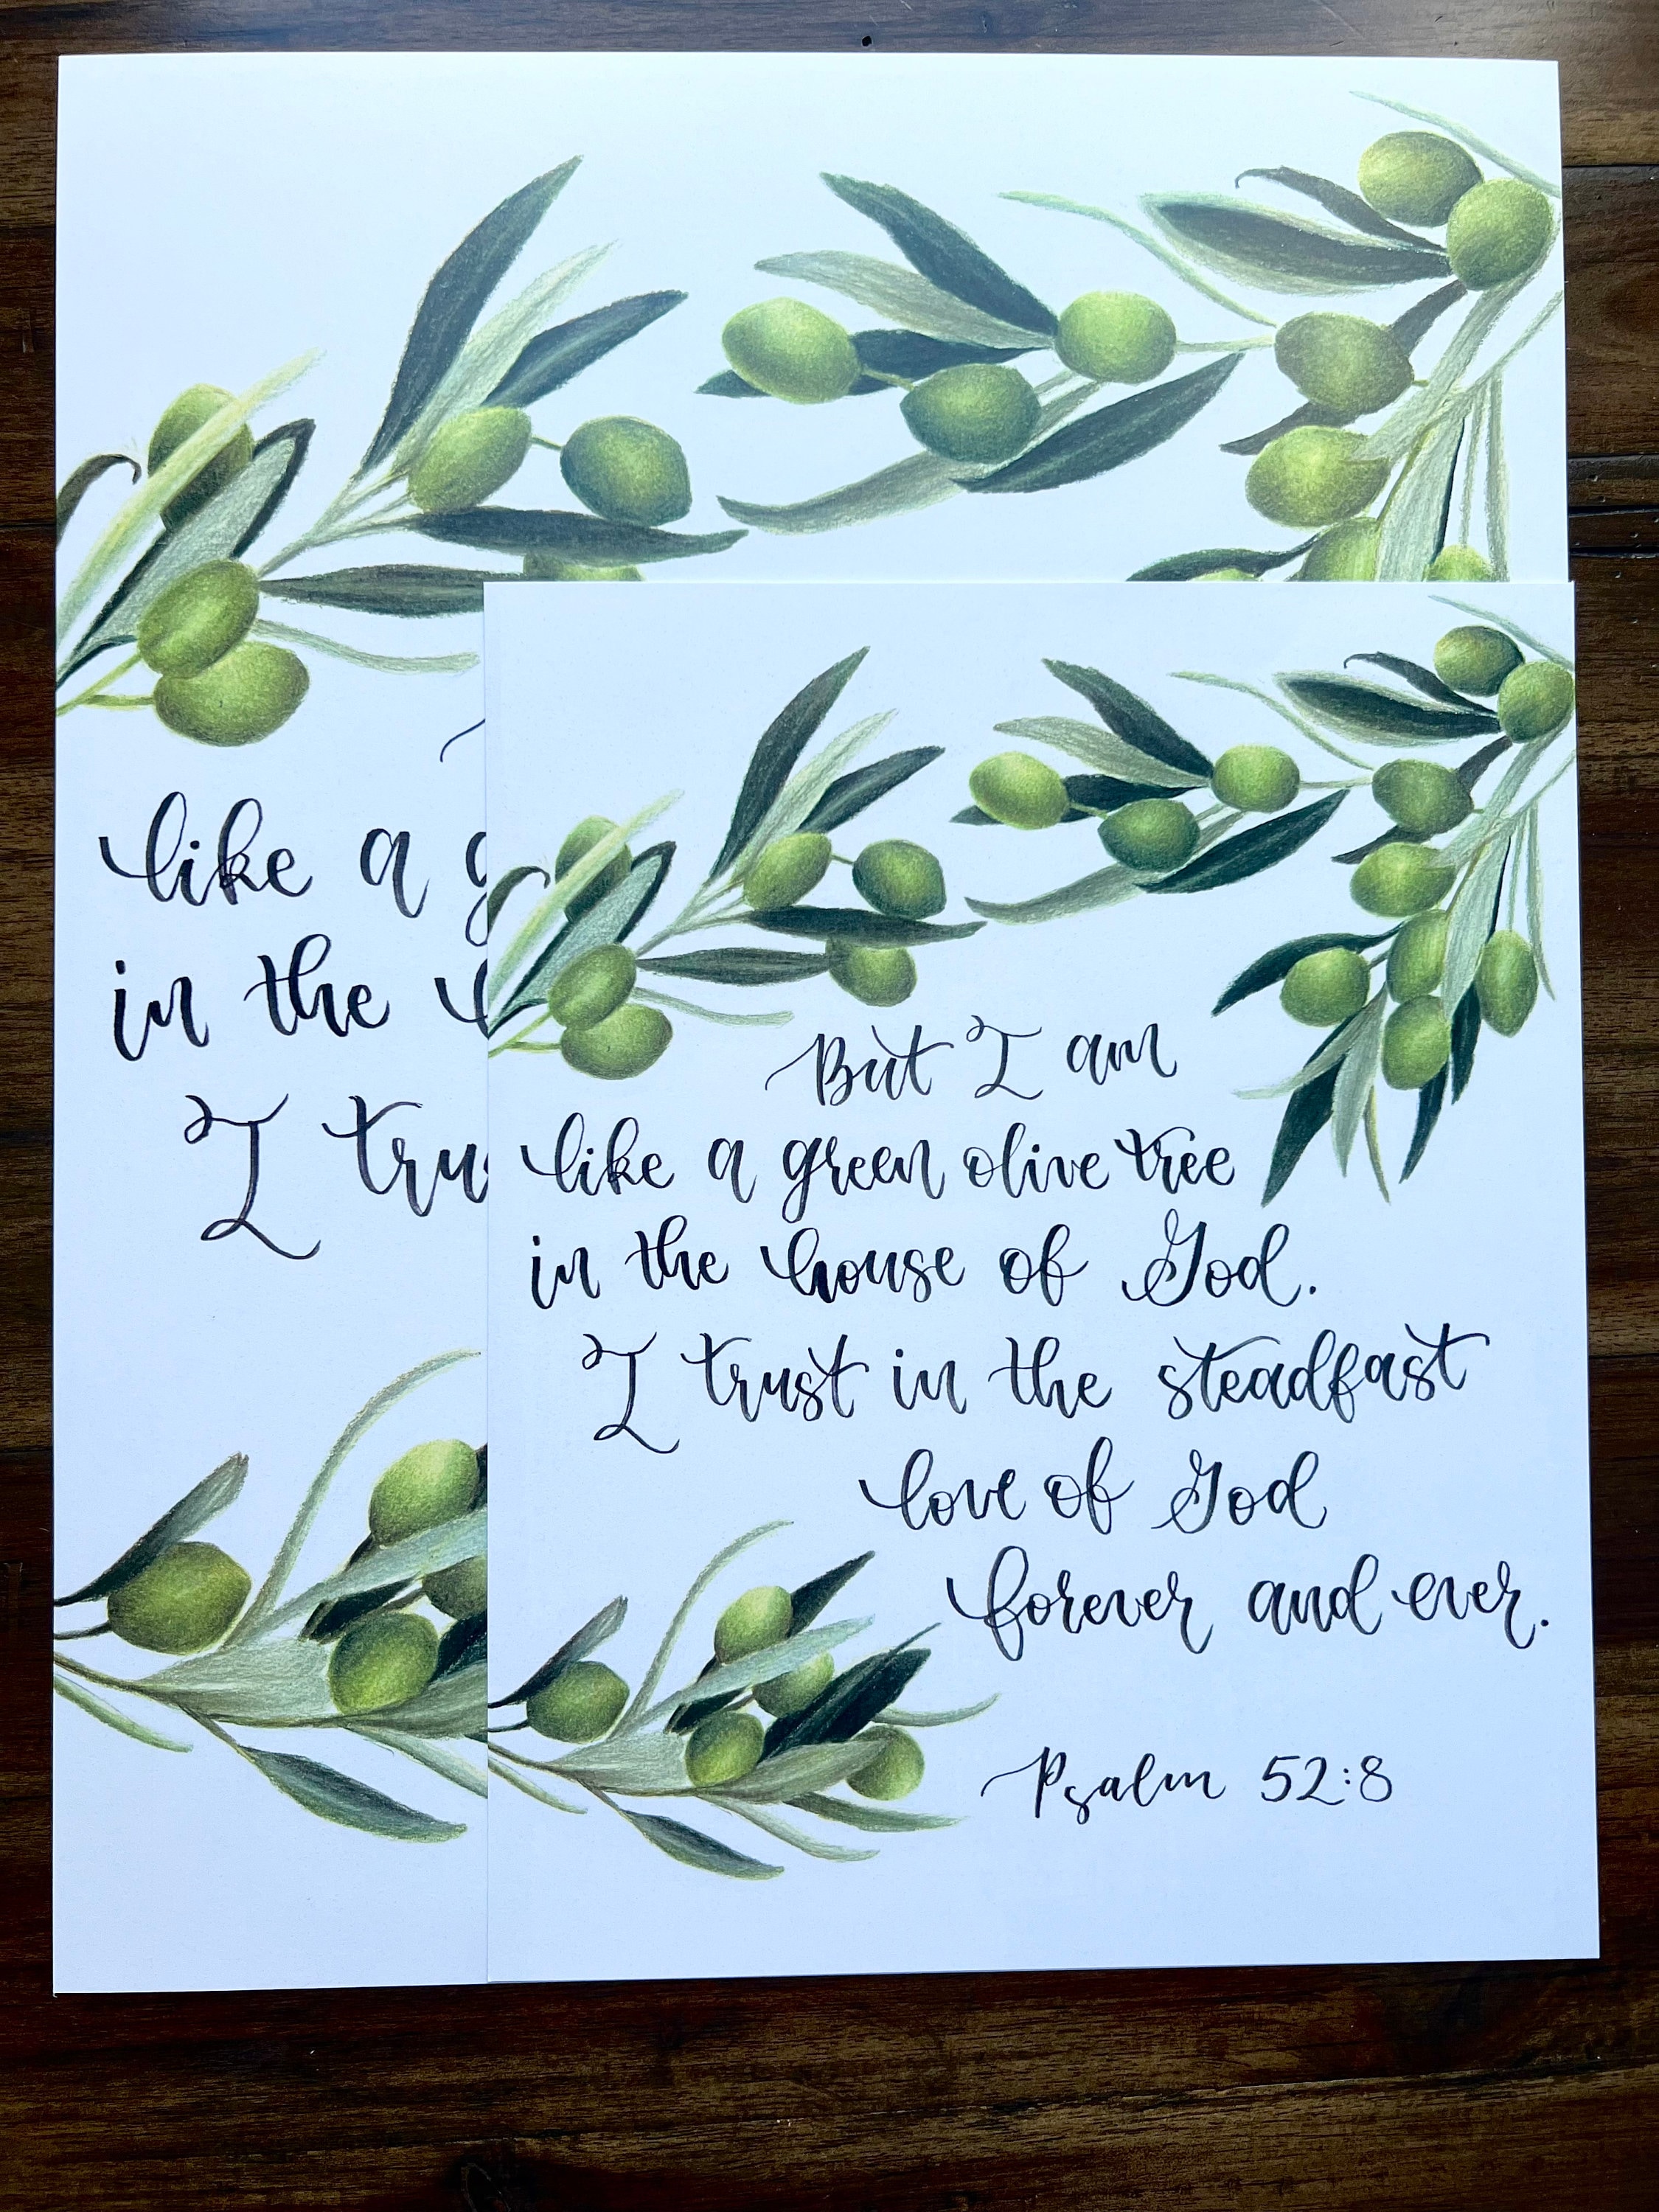 like a g
in the
I trus
But I am
like a green olive tree
in the house of God.
I trust in the steadfast
love of God
forever and ever.
Psalm 52:8